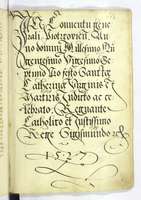 In Conventu gene
rali Piotrcovien̄ An
no domini Millesimo Qui
ngentesimo Vigesimo Se
ptimo Pro festo Sanctae
Catherinae Virginis et
Martiris Indicto ac ce
lebrato. Regnante
Catholico et Iustissimo
Rege Sigismundo
1527